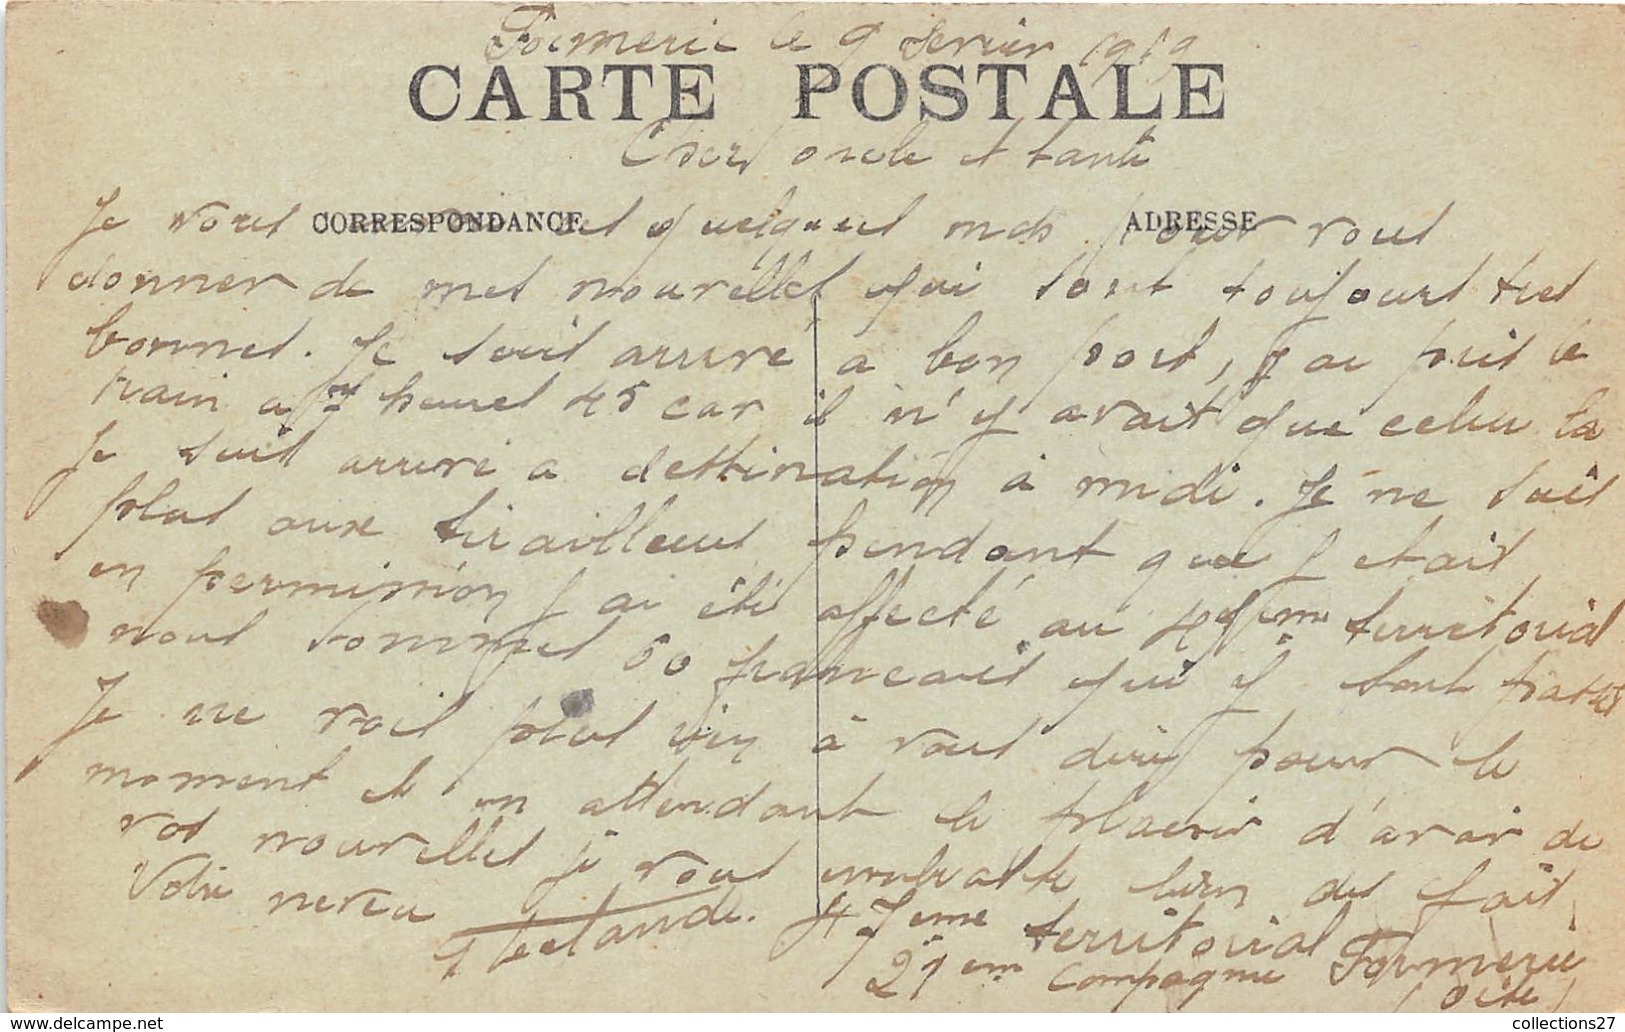 Formerie le 9 Fevrier 1919
CARTE POSTALE
Cher oncle et tante
CORRESPONDANCE
ADRESSE
Je vous quelques mots pour vous
donner de mes nouvelles qui sont toujours tres
bonnes. Je suis arrivé a bon port, j'ai pris le
train a 7 heures 45 car il n'y avait que celui la
Je suis arrivé a destination à midi. Je ne suis
plus aux tirailleurs pendant que j etais
en permission j ai été affecté au 47eme territorial
nous sommes 50 francais qui y sont passés
Je ne vois plus rien à vous dire pour le
moment et en attendant le plaisir d'avoir de
vos nouvelles je vous embrasse bien des fois
Votre neveu
47eme territorial Formerie
21em Compagnie (Oise)
collections27